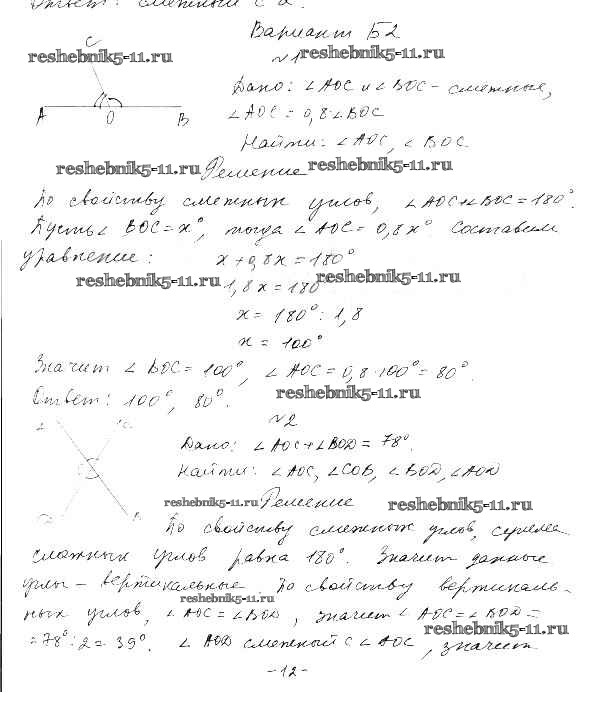 Ответ: смежный с α.
Вариант Б2
C
reshebnik5-11.ru
№1 reshebnik5-11.ru
Дано: ∠AOC и ∠BOC – смежные,
A O B
∠AOC = 0,8·∠BOC
Найти: ∠AOC, ∠BOC.
reshebnik5-11.ru Решение reshebnik5-11.ru
По свойству смежных углов, ∠AOC+∠BOC=180°.
Пусть ∠BOC=x°, тогда ∠AOC = 0,8x°. Составим
уравнение: x+0,8x=180°
reshebnik5-11.ru reshebnik5-11.ru
1,8x=180°
x= 180° : 1,8
x = 100°
Значит ∠BOC=100°, ∠AOC=0,8·100°=80°.
Ответ: 100°, 80°. reshebnik5-11.ru
№2
Дано: ∠AOC+∠BOD=78°.
Найти: ∠AOC, ∠COB, ∠BOD, ∠AOD
reshebnik5-11.ru Решение reshebnik5-11.ru
По свойству смежных углов, сумма
смежных углов равна 180°. Значит данные
углы – вертикальные По свойству вертикаль-
reshebnik5-11.ru
ных углов, ∠AOC=∠BOD, значит ∠AOC=∠BOD=
reshebnik5-11.ru
=78°:2=39°. ∠AOD смежный с ∠AOC, значит
-12-